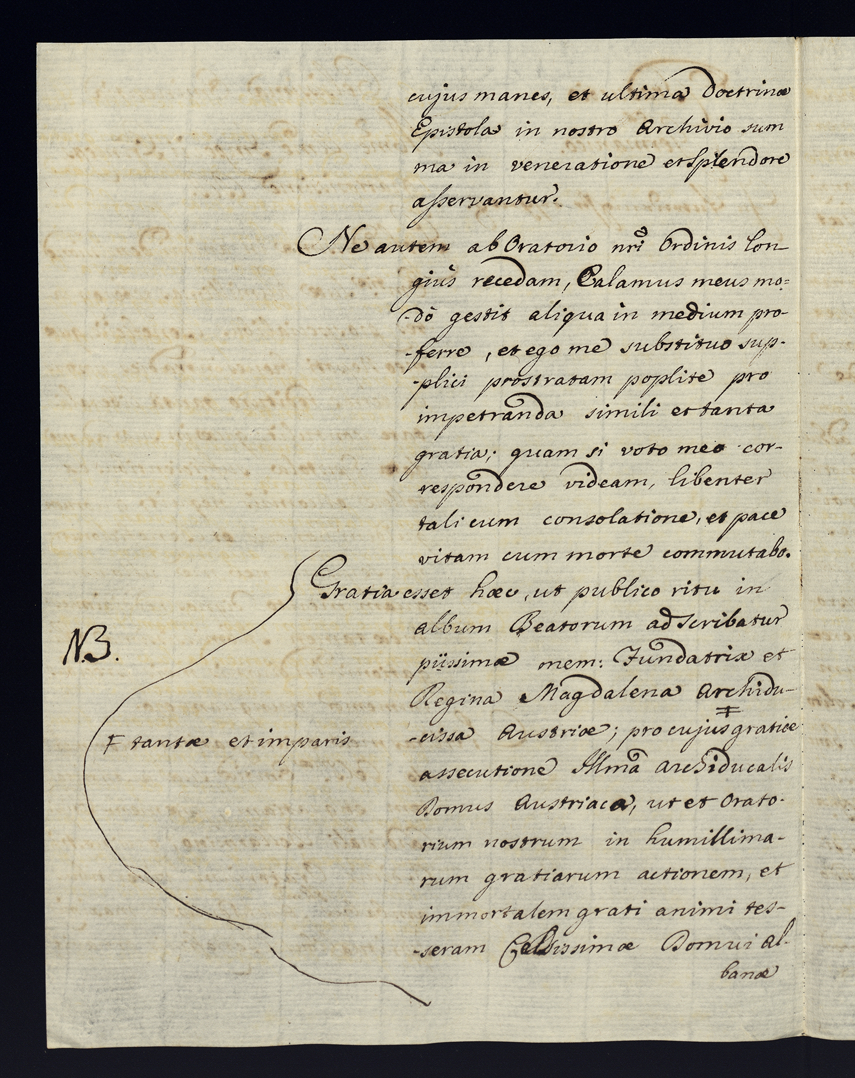 cujus manes, et ultima Doctrinæ
Epistola in nostro Archivio sum
ma in veneratione et Splendore
asservantur.
Ne autem ab Oratorio nrĩ Ordinis lon
giùs recedam, Calamus meus mo=
-dò gestit aliqua in medium pro-
-ferre, et ego me substituo sup-
-plici prostratam poplite pro
impetranda simili et tanta
gratia; quam si voto meo cor-
respondere videam, libenter
tali cum consolatione, et pace
vitam cum morte commutabo.
Gratia esset hæc, ut publico ritu in
album Beatorum adscribatur
piissimæ mem: Fundatrix et
Regina Magdalena Archidu-
-cissa Austriæ; pro cujus ǂ gratiæ
assecutione Illmã Archiducalis
Domus Austriaca, ut et Orato-
rium nostrum in humillima-
rum gratiarum actionem, et
immortalem grati animi tes-
-seram Celsissimæ Domui Al-
banæ
NB.
ǂ tantæ et imparis